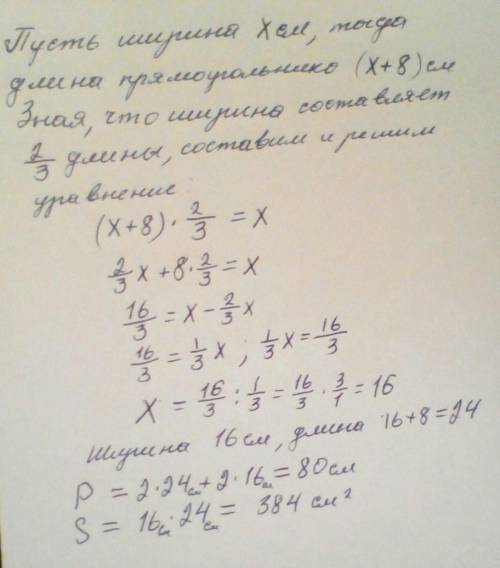 Пусть ширина x см, тогда
длина прямоугольнико (x+8) см
Зная, что ширина составляет
2/3 длины, составим и решим
уравнение:
(x+8) · 2/3 = x
2/3 x + 8 · 2/3 = x
16/3 = x - 2/3 x
16/3 = 1/3 x ; 1/3 x = 16/3
x = 16/3 : 1/3 = 16/3 · 3/1 = 16
Ширина 16 см, длина 16+8=24
P = 2·24 см + 2·16 см = 80 см
S = 16 см · 24 см = 384 см²